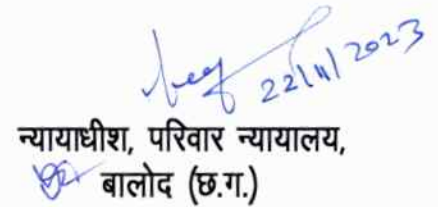 22/11/2023
न्यायाधीश, परिवार न्यायालय,
बालोद (छ.ग.)